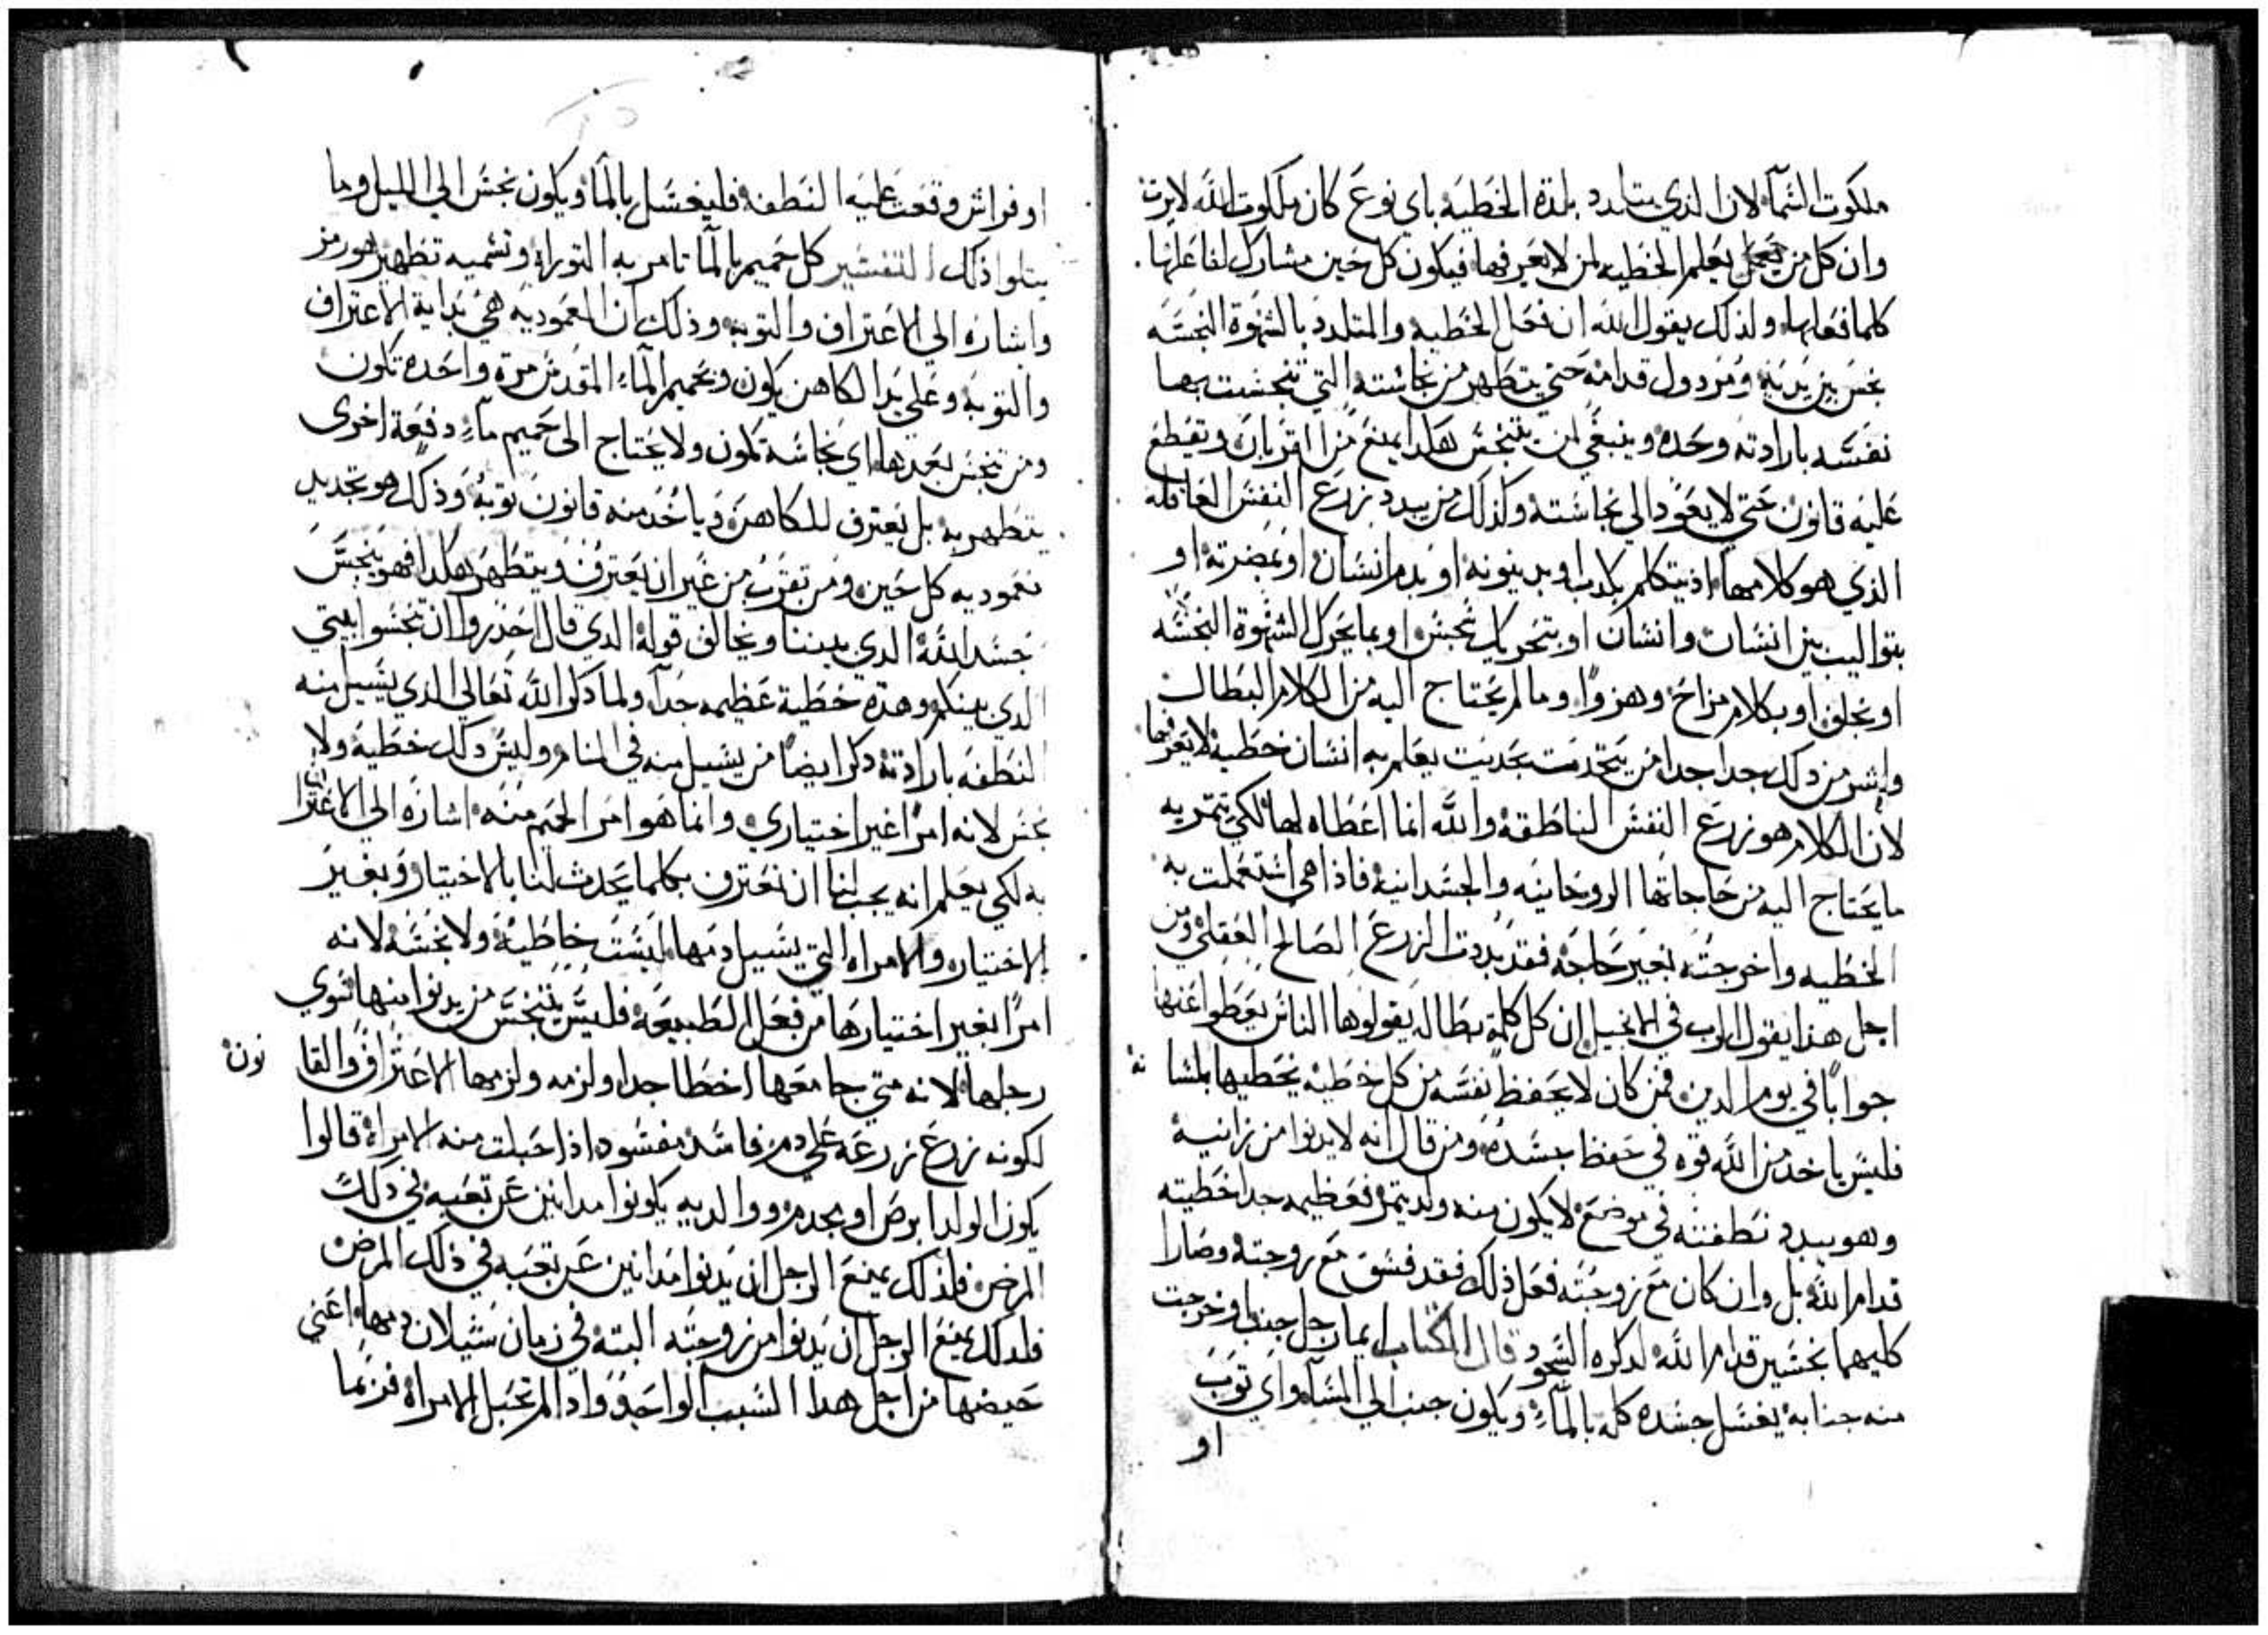 ملكوت السماء لان الذي يتلدد بلذة الخطيه باي نوع كان ملكوت الله لا يرث
وان كل من يعلم الخطيه لمن لا يعرفها فيكون كل حين مشارك لفاعلها
كلما فعلها ولذلك يقول الله ان فعل الخطيه والمتلدد بالشهوة النجسه
نجس بين يديه ومردول قدامه حتي يتطهر من نجاسته التي تنجست بها
نفسه بارادته وحده وينبغي لمن يتنجس هكدا يمنع من القربان وتقطع
عليه قانون حتي لا يعود الي نجاسته وكذلك من يبدد زرع النفس العاقله
الذي هو كلامها اذ يتكلم بكدب او بدينونه او بدم انسان او بمضرته او
بتواليب بين انسان وانسان او بتحريك نجس او بما يحرك الشهوة النجسه
او بحلف او بكلام مزاح وهزوا وما لم يحتاج اليه من الكلام البطال
واشر من دلك جدا جدا من يتحدت بحديت يعلم به انسان خطيه لا يعرفها
لان الكلام هو زرع النفس الناطقه والله انما اعطاه لها لكي تتمر به
ما يحتاج اليه من حاجاتها الروحانيه والجسدانيه فاذا هي استعملت به
الخطيه واخرجته بغير حاجه فقد بددت الزرع الصالح العقلي ومن
اجل هذا يقول الرب في الانجيل ان كل كلمة بطاله يقولوها الناس يعطوا عنها
جوابا في يوم الدين فمن كان لا يحفظ نفسه من كل خطيه يخطيها بلسا
نه
فليس ياخد من الله قوه في حفظ جسده ومن قال انه لا يدنوا من زانيه
وهو يبدد نطفته في موضع لا يكون منه ولد يتمر فعظيمه جدا خطيته
قدام الله بل وان كان مع زوجته فعل ذلك فقد فسق مع زوجته وصارا
كليهما نجسين قدام الله لدكره السجود قال الكتاب ايما رجل جنبا وخرجت
منه جنابة يغسل جسده كله بالماء ويكون جنب الي المساء واي توب
او
او فراش وقعت عليه النطفه فليغسل بالماء ويكون نجس الي الليل وما
يتلوا ذلك التفسير كل حميم بالماء تامر به التوراه وتسميه تطهير هو رمز
واشاره الي الاعتراف والتوبه وذلك ان المعموديه هي بداية الاعتراف
والتوبه وعلي يد الكاهن يكون وحميم الماء المقدس مرة واحده تكون
ومن تنجس بعدها اي نجاسه تكون ولا يحتاج الى حميم ماء دفعة اخرى
يتطهر به بل يعترف للكاهن وياخد منه قانون توبه وذلك هو تجديد
معموديه كل حين ومن تقرب من غير ان يعترف ويتطهر هكدا فهو ينجس
جسد الله الدي بيننا ويخالف قوله الدي قال احذروا ان تنجسوا بيتي
الدي بينكم وهده خطية عظيمه جدا ولما دكر الله تعالي الذي يسيل منه
النطفه بارادته دكر ايضا من يسيل منه في المنام وليس دلك خطية ولا
نجس لانه امرا غير اختياري وانما هو امر الحميم منه اشاره الي الاعترا
به لكي يعلم انه يجب لنا ان نعترف بكلما يحدث لنا بالاختيار وبغير
الاختيار والامراه التي يسيل دمها ليست خاطيه ولا نجسه لانه
امرا بغير اختيارها من فعل الطبيعه فليس يتنجس من يدنوا منها سوي
رجلها لانه متي جامعها اخطا جدا ولزمه ولزمها الاعتراف والقا
نون
لكونه زرع زرعه علي دم فاسد مفسود اذا حبلت منه الامراه قالوا
يكون الولد ابرص او مجدم ووالديه يكونوا مدانين عن تعبه في دلك
المرض فلذلك يمنع الرجل ان يدنوا مدانين عن تعبه في ذلك المرض
فلدلك يمنع الرجل ان يدنوا من زوجته البته في زمان سيلان دمها اعني
حيضها من اجل هدا السبب الواحد واد الم تحبل الامراه فربما